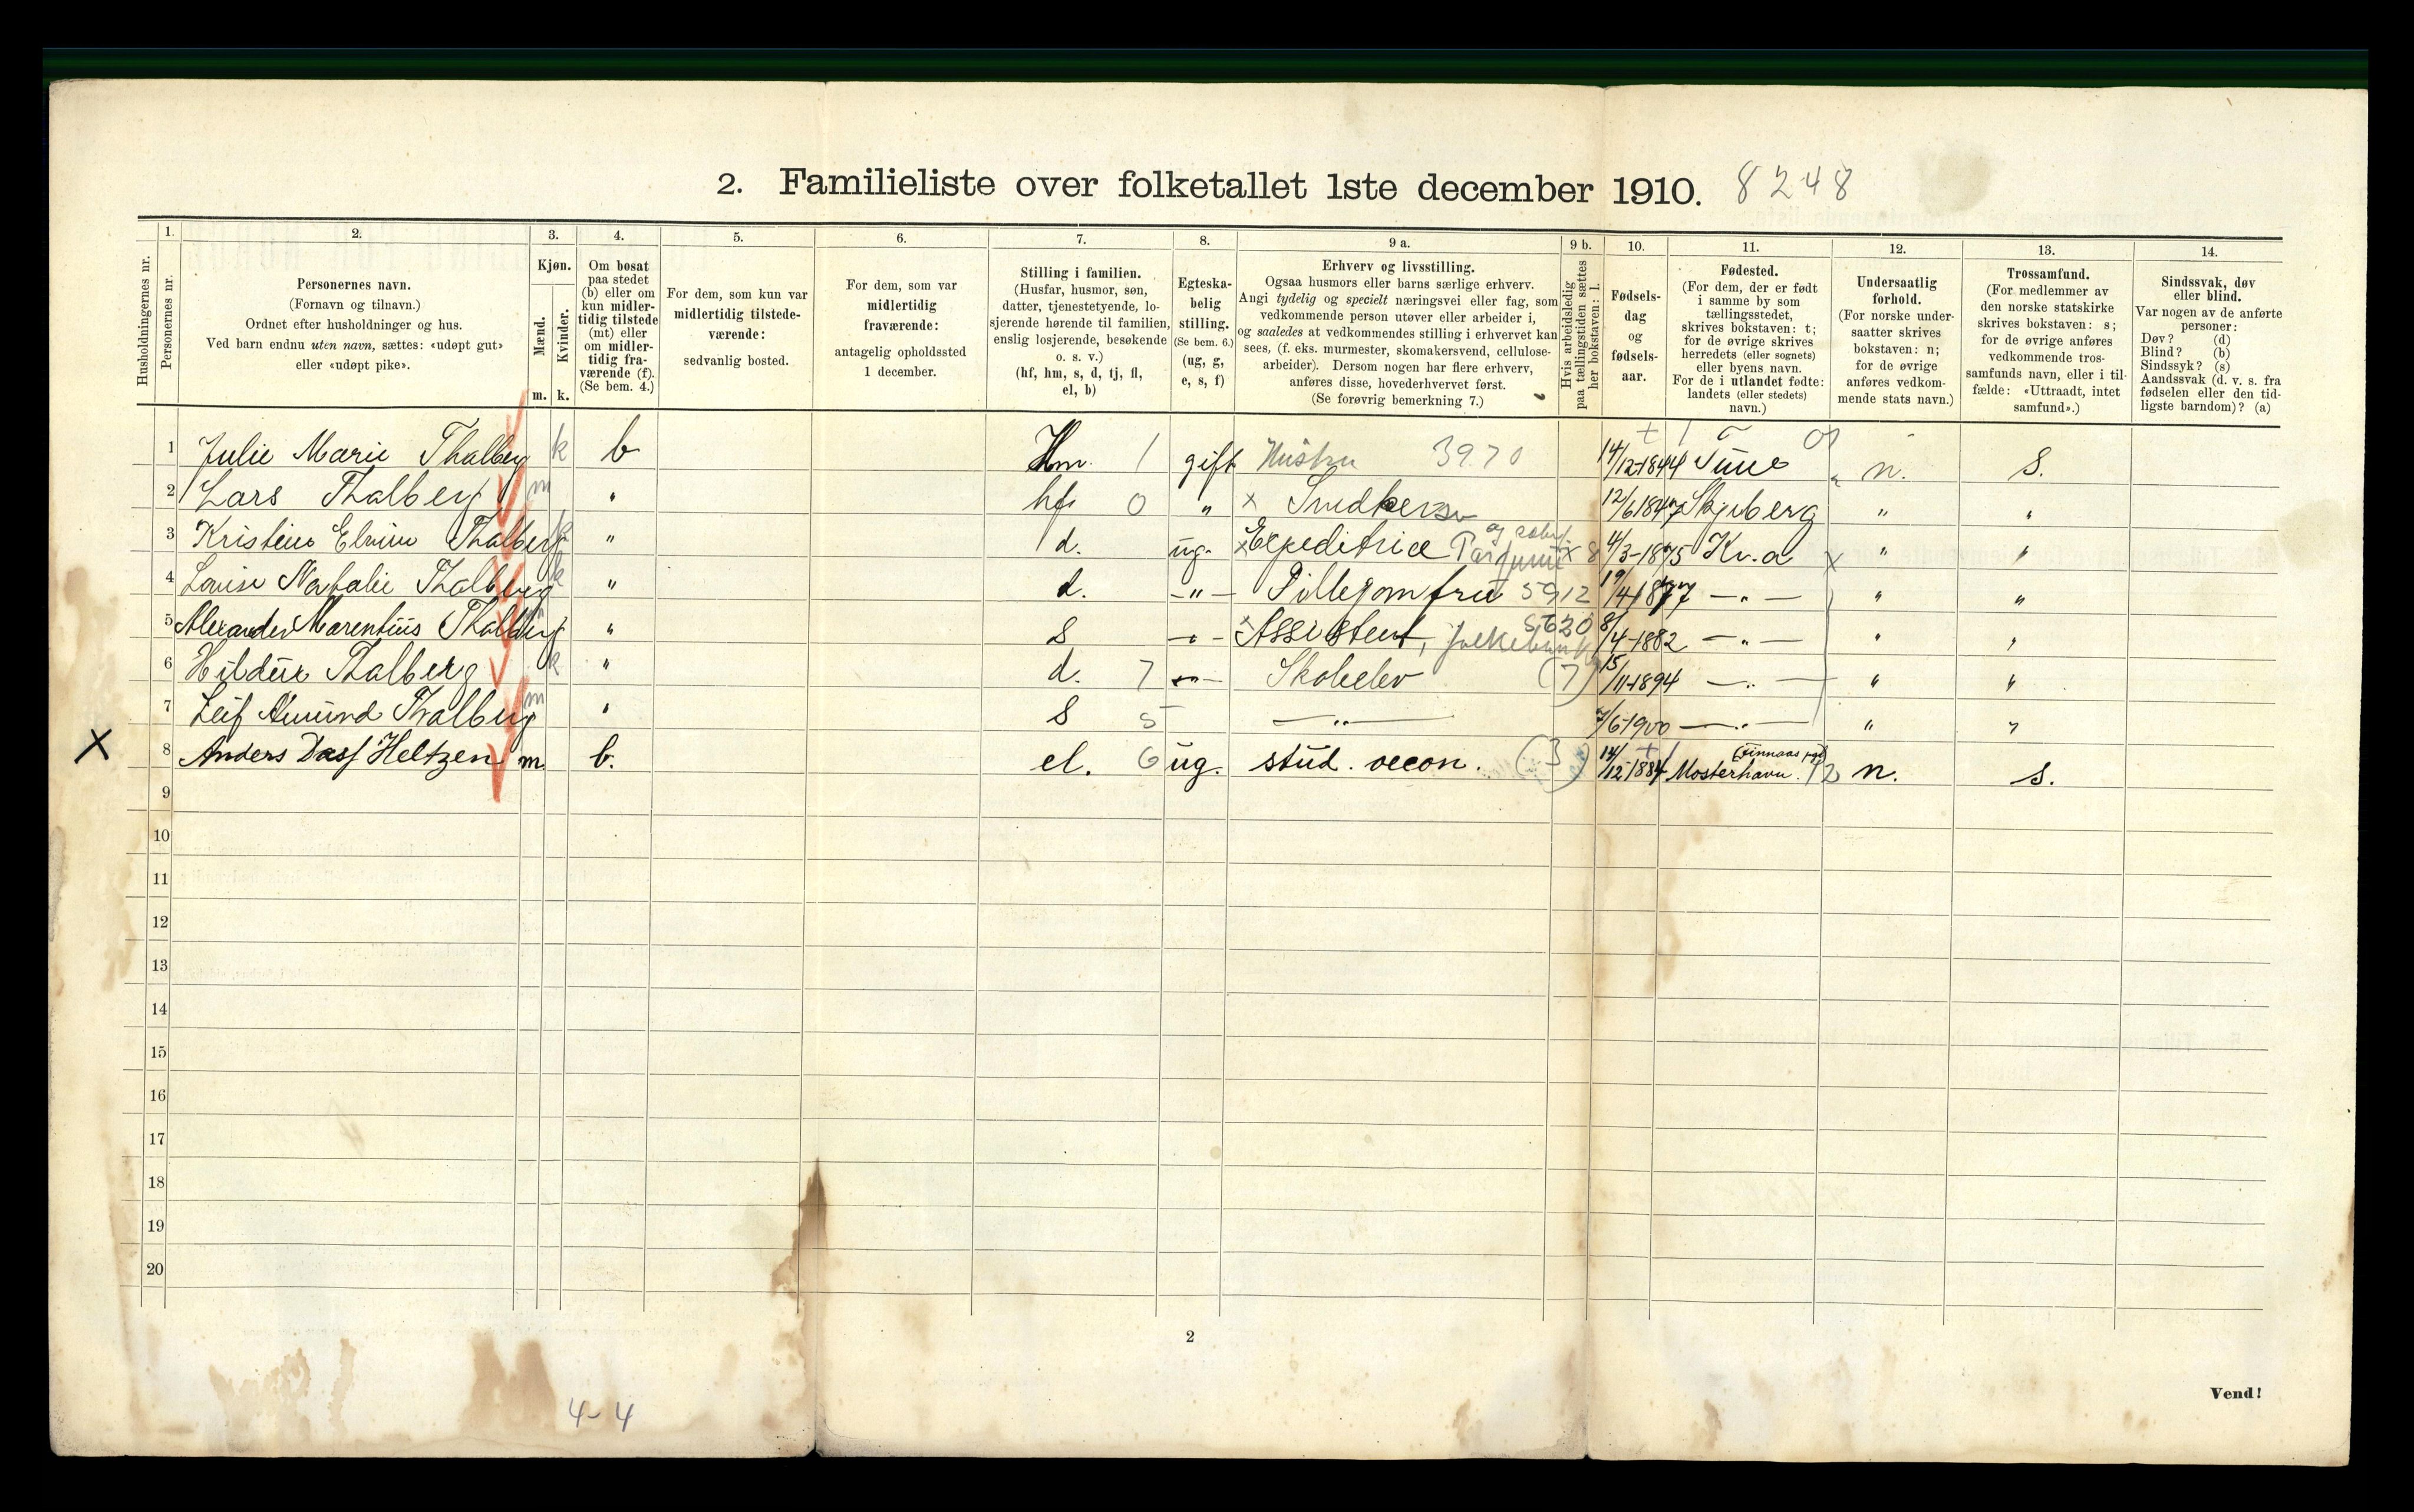 2. Familieliste over folketallet 1ste december 1910. 8248
Husholdningernes nr.
1.
Personernes nr.
2.
Personernes navn.
(Fornavn og tilnavn.)
Ordnet efter husholdninger og hus.
Ved barn endnu uten navn, sættes: «udøpt gut»
eller «udøpt pike».
3.
Kjøn.
Mænd.
Kvinder.
m. k.
4.
Om bosat
paa stedet
(b) eller om
kun midler-
tidig tilstede
(mt) eller
om midler-
tidig fra-
værende (f).
(Se bem. 4.)
5.
For dem, som kun var
midlertidig tilstede-
værende:
sedvanlig bosted.
6.
For dem, som var
midlertidig
fraværende:
antagelig opholdssted
1 december.
7.
Stilling i familien.
(Husfar, husmor, søn,
datter, tjenestetyende, lo-
sjerende hørende til familien,
enslig losjerende, besøkende
o. s. v.)
(hf, hm, s, d, tj, fl,
el, b)
8.
Egteska-
belig
stilling.
(Se bem. 6.)
(ug, g,
e, s, f)
9 a.
Erhverv og livsstilling.
Ogsaa husmors eller barns særlige erhverv.
Angi tydelig og specielt næringsvei eller fag, som
vedkommende person utøver eller arbeider i,
og saaledes at vedkommendes stilling i erhvervet kan
sees, (f. eks. murmester, skomakersvend, cellulose-
arbeider). Dersom nogen har flere erhverv,
anføres disse, hovederhvervet først.
(Se forøvrig bemerkning 7.)
9 b.
Hvis arbeidsledig
paa tællingstiden sættes
her bokstaven: l.
10.
Fødsels-
dag
og
fødsels-
aar.
11.
Fødested.
(For dem, der er født
i samme by som
tællingsstedet,
skrives bokstaven: t;
for de øvrige skrives
herredets (eller sognets)
eller byens navn.
For de i utlandet fødte:
landets (eller stedets)
navn.)
12.
Undersaatlig
forhold.
(For norske under-
saatter skrives
bokstaven: n;
for de øvrige
anføres vedkom-
mende stats navn.)
13.
Trossamfund.
(For medlemmer av
den norske statskirke
skrives bokstaven: s;
for de øvrige anføres
vedkommende tros-
samfunds navn, eller i til-
fælde: «Uttraadt, intet
samfund».)
14.
Sindssvak, døv
eller blind.
Var nogen av de anførte
personer:
Døv? (d)
Blind? (b)
Sindssyk? (s)
Aandssvak (d. v. s. fra
fødselen eller den tid-
ligste barndom)? (a)
1 Julie Marie Thalberg k b Hm. 1 gift Hustru 3970 14/12-1844 Tune n. S.
2 Lars Thalberg m " hf. 0 " x Snedker 12/6 1847 Skjeberg " "
3 Kristine Elvine Thalberg k " d. ug. x Expeditrice 4/3-1875 Kr.a x " "
4 Louise Nathalie Thalberg k " d. -"- Pillejomfru 5912 19/4 1877 -"- " "
5 Alexander Marentius Thalberg " S -"- x Assistent, 5620 8/4-1882 -"- " "
6 Hildur Thalberg k " d. 7 -"- Skoleelev (7) 15/11-1894 -"- " "
7 Leif Amund Thalberg m " S 5 -"- 7/6-1900 -"- " "
x 8 Anders Dass Heltzen m b. el. 6 ug. stud. oecon. (3) 14/12-1884 Mosterhavn. 12 n. S.
9
10
11
12
13
14
15
16
17
18
19
20
2
Vend!
4-4